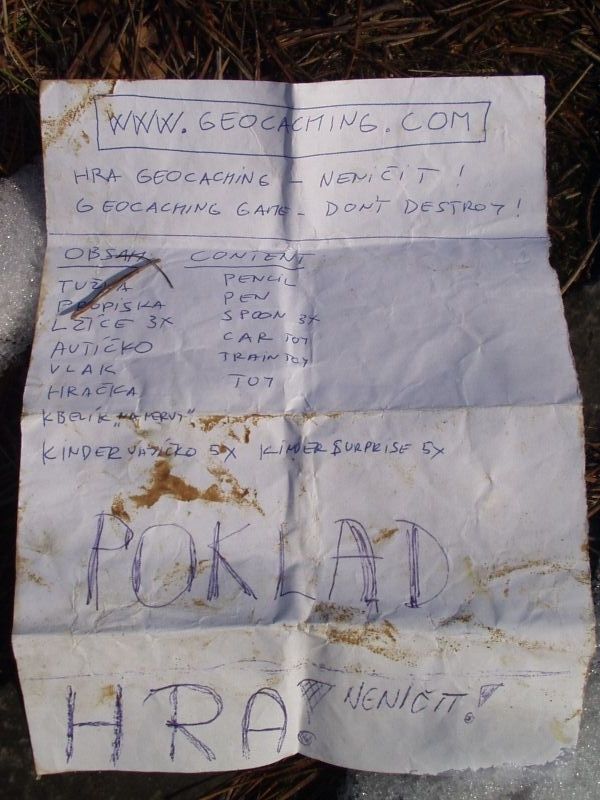 WWW.GEOCACHING.COM
HRA GEOCACHING - NENIČIT!
GEOCACHING GAME - DON'T DESTROY!
OBSAH CONTENT
TUŽKA PENCIL
PROPISKA PEN
LŽÍCE 3X SPOON 3X
AUTÍČKO CAR TOY
VLAK TRAIN TOY
HRAČKA TOY
KBELÍK
KINDER VAJÍČKO 5X KINDER SURPRISE 5X
POKLAD
HRA! NENIČIT!